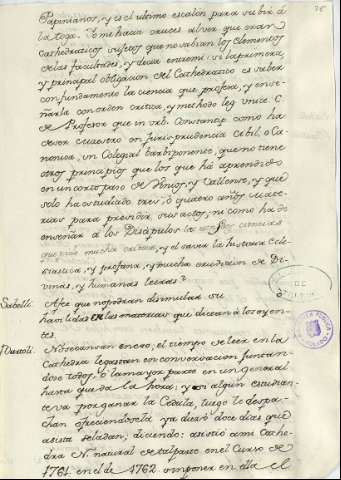 Papinianos, y es el ultimo escalon para subir á
la toga. Tome haran cruces al ver que eran
Cathedraticos sujetos que no sabian los Elementos
de las facultades, y decia entre mi si la primera,
y principal obligacion del Cathedratico es saber
con fundamento la ciencia que profesa, y ense-
ñarla con orden critica, y methodo leg. unic. C.
de Profesor que in urb. Constantip como ha
de ser Maestro en Juris-prudencia Cebil, o Ca-
nonica, un Colegial barbiponente, que no tiene
otros principios que los que há aprendido
en un corto paso de Vinios, y Vallense, y que
solo ha estudiado tres, ò quatro años mate-
rias para presidir sus actos, ni como ha de
enseñar á los Discipulos las ciencias
que pide mucha critica, y el saver la historia Ecle-
siastica, y profana, y mucha erudicion de Di-
vinas, y humanas letras?
Saibelli. A fee que no podran disimular su
habilidad en las materias que dictan à los oyen-
tes.
No se cansan en eso, el tiempo de leer en la
Cathedra le gastan en conversacion juntan-
dose todos, ò la mayor parte en un general
hasta que da la hora; y si algun estudian-
te va por ganar la Cedula, luego le despa-
chan ofreciendosela ya diez ò doce dias que
asista se la dan; diciendo: asistió a mi Cathe-
dra N. natural de tal parte en el Curso de
1761. en el de 1762. imponer en dha el